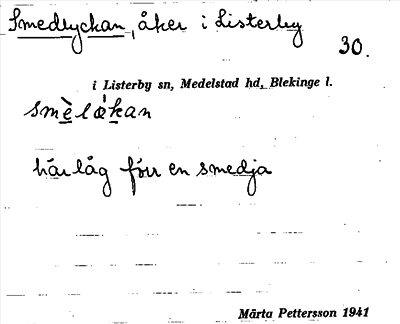 Smedlyckan, åker i Listerby
30.
i Listerby sn, Medelstad hd, Blekinge l.
smèlǿkan
här låg förr en smedja
Märta Pettersson 1941